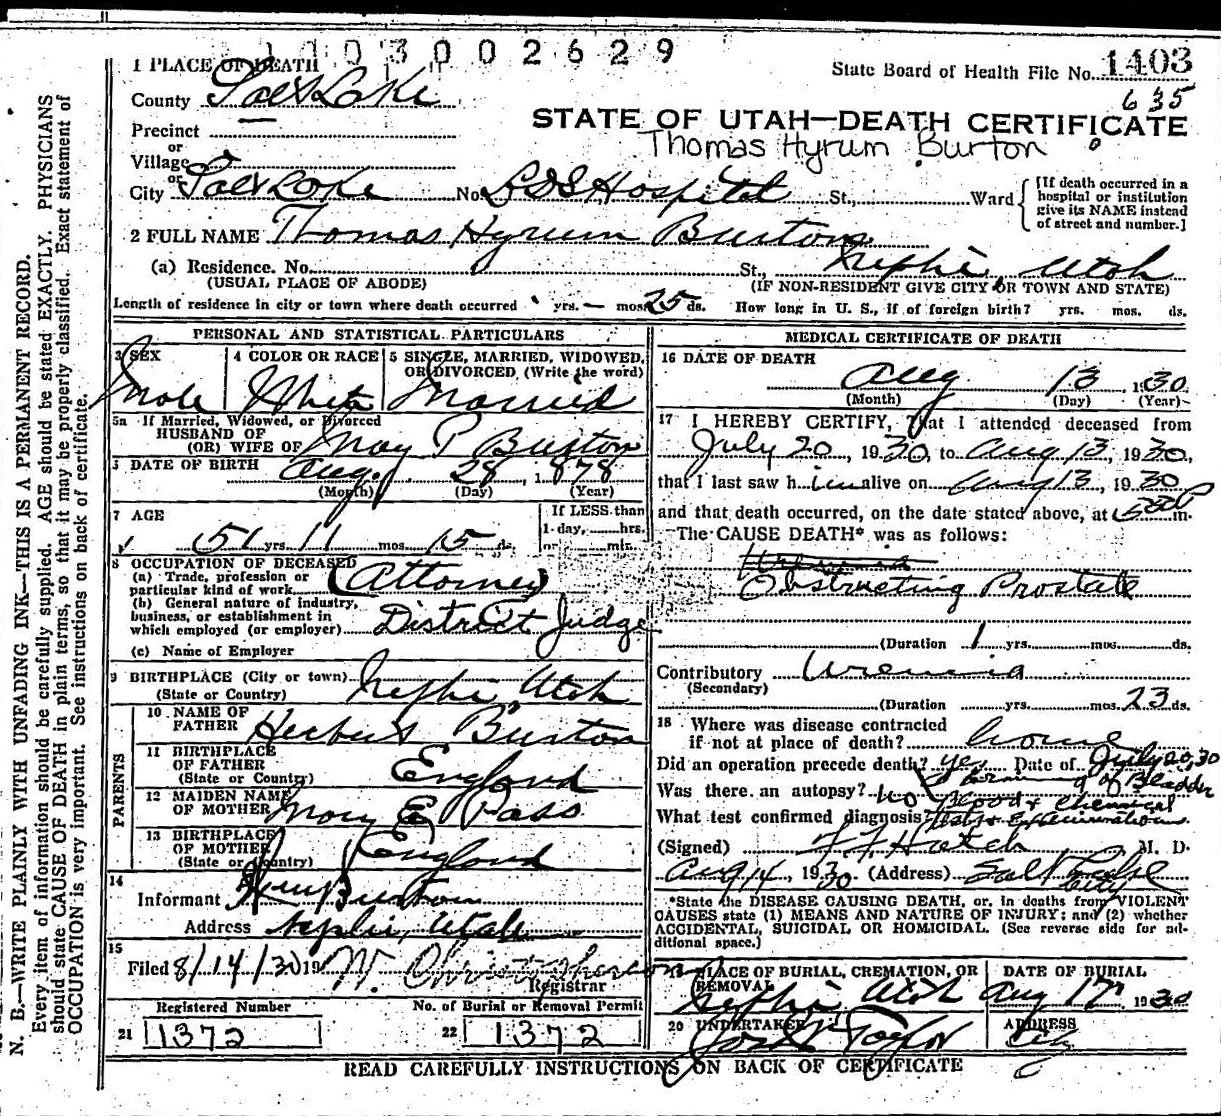 1003002629
1 PLACE OF DEATH
State Board of Health File No. 1403
635
County Salt Lake
STATE OF UTAH—DEATH CERTIFICATE
Thomas Hyrum Burton
Precinct
or
Village
or
City Salt Lake No. LDS Hospital St., Ward
[If death occurred in a
hospital or institution
give its NAME instead
of street and number.]
2 FULL NAME Thomas Hyrum Burton
(a) Residence. No. St., Nephi, Utah
(USUAL PLACE OF ABODE) (IF NON-RESIDENT GIVE CITY OR TOWN AND STATE)
Length of residence in city or town where death occurred yrs. — mos. 25 ds. How long in U. S., if of foreign birth? yrs. mos. ds.
PERSONAL AND STATISTICAL PARTICULARS
3 SEX
Male
4 COLOR OR RACE
White
5 SINGLE, MARRIED, WIDOWED,
OR DIVORCED (Write the word)
Married
5a If Married, Widowed, or Divorced
HUSBAND OF
(OR) WIFE OF May P Burton
6 DATE OF BIRTH Aug. 28, 1878
(Month) (Day) (Year)
7 AGE
51 yrs. 11 mos. 15 ds.
If LESS than
1 day, hrs.
or min.
8 OCCUPATION OF DECEASED
(a) Trade, profession or
particular kind of work (Attorney)
(b) General nature of industry,
business, or establishment in
which employed (or employer) District Judge
(c) Name of Employer
9 BIRTHPLACE (City or town) Nephi Utah
(State or Country)
PARENTS
10 NAME OF
FATHER Herbert Burton
11 BIRTHPLACE
OF FATHER England
(State or Country)
12 MAIDEN NAME
OF MOTHER Mary E Pass
13 BIRTHPLACE
OF MOTHER England
(State or Country)
14
Informant Burton
Address Nephi, Utah
15
Filed 8/14/30 19 W. Christopherson
Registrar
Registered Number No. of Burial or Removal Permit
21 1372 22 1372
MEDICAL CERTIFICATE OF DEATH
16 DATE OF DEATH
Aug 13 1930
(Month) (Day) (Year)
17 I HEREBY CERTIFY, That I attended deceased from
July 20, 1930, to Aug 13, 1930,
that I last saw him alive on Aug 13, 1930
and that death occurred, on the date stated above, at m.
The CAUSE DEATH* was as follows:
Uremia
Obstructing Prostate
(Duration 1 yrs. mos. ds.
Contributory Uremia
(Secondary)
(Duration yrs. mos. 23 ds.
18 Where was disease contracted
if not at place of death? home
Did an operation precede death? yes Date of July 20, 30
of Bladder
Was there an autopsy? No
Blood & Chemical
What test confirmed diagnosis? tests & Examinations
(Signed) Hatch M. D.
Aug 14, 1930 (Address) Salt Lake
City
*State the DISEASE CAUSING DEATH, or, in deaths from VIOLENT
CAUSES state (1) MEANS AND NATURE OF INJURY; and (2) whether
ACCIDENTAL, SUICIDAL OR HOMICIDAL. (See reverse side for ad-
ditional space.)
PLACE OF BURIAL, CREMATION, OR
REMOVAL
Nephi Utah
DATE OF BURIAL
Aug 17 1930
20 UNDERTAKER
Taylor
ADDRESS
City
READ CAREFULLY INSTRUCTIONS ON BACK OF CERTIFICATE
N. B.—WRITE PLAINLY WITH UNFADING INK—THIS IS A PERMANENT RECORD.
Every item of information should be carefully supplied. AGE should be stated EXACTLY. PHYSICIANS
should state CAUSE OF DEATH in plain terms, so that it may be properly classified. Exact statement of
OCCUPATION is very important. See instructions on back of certificate.